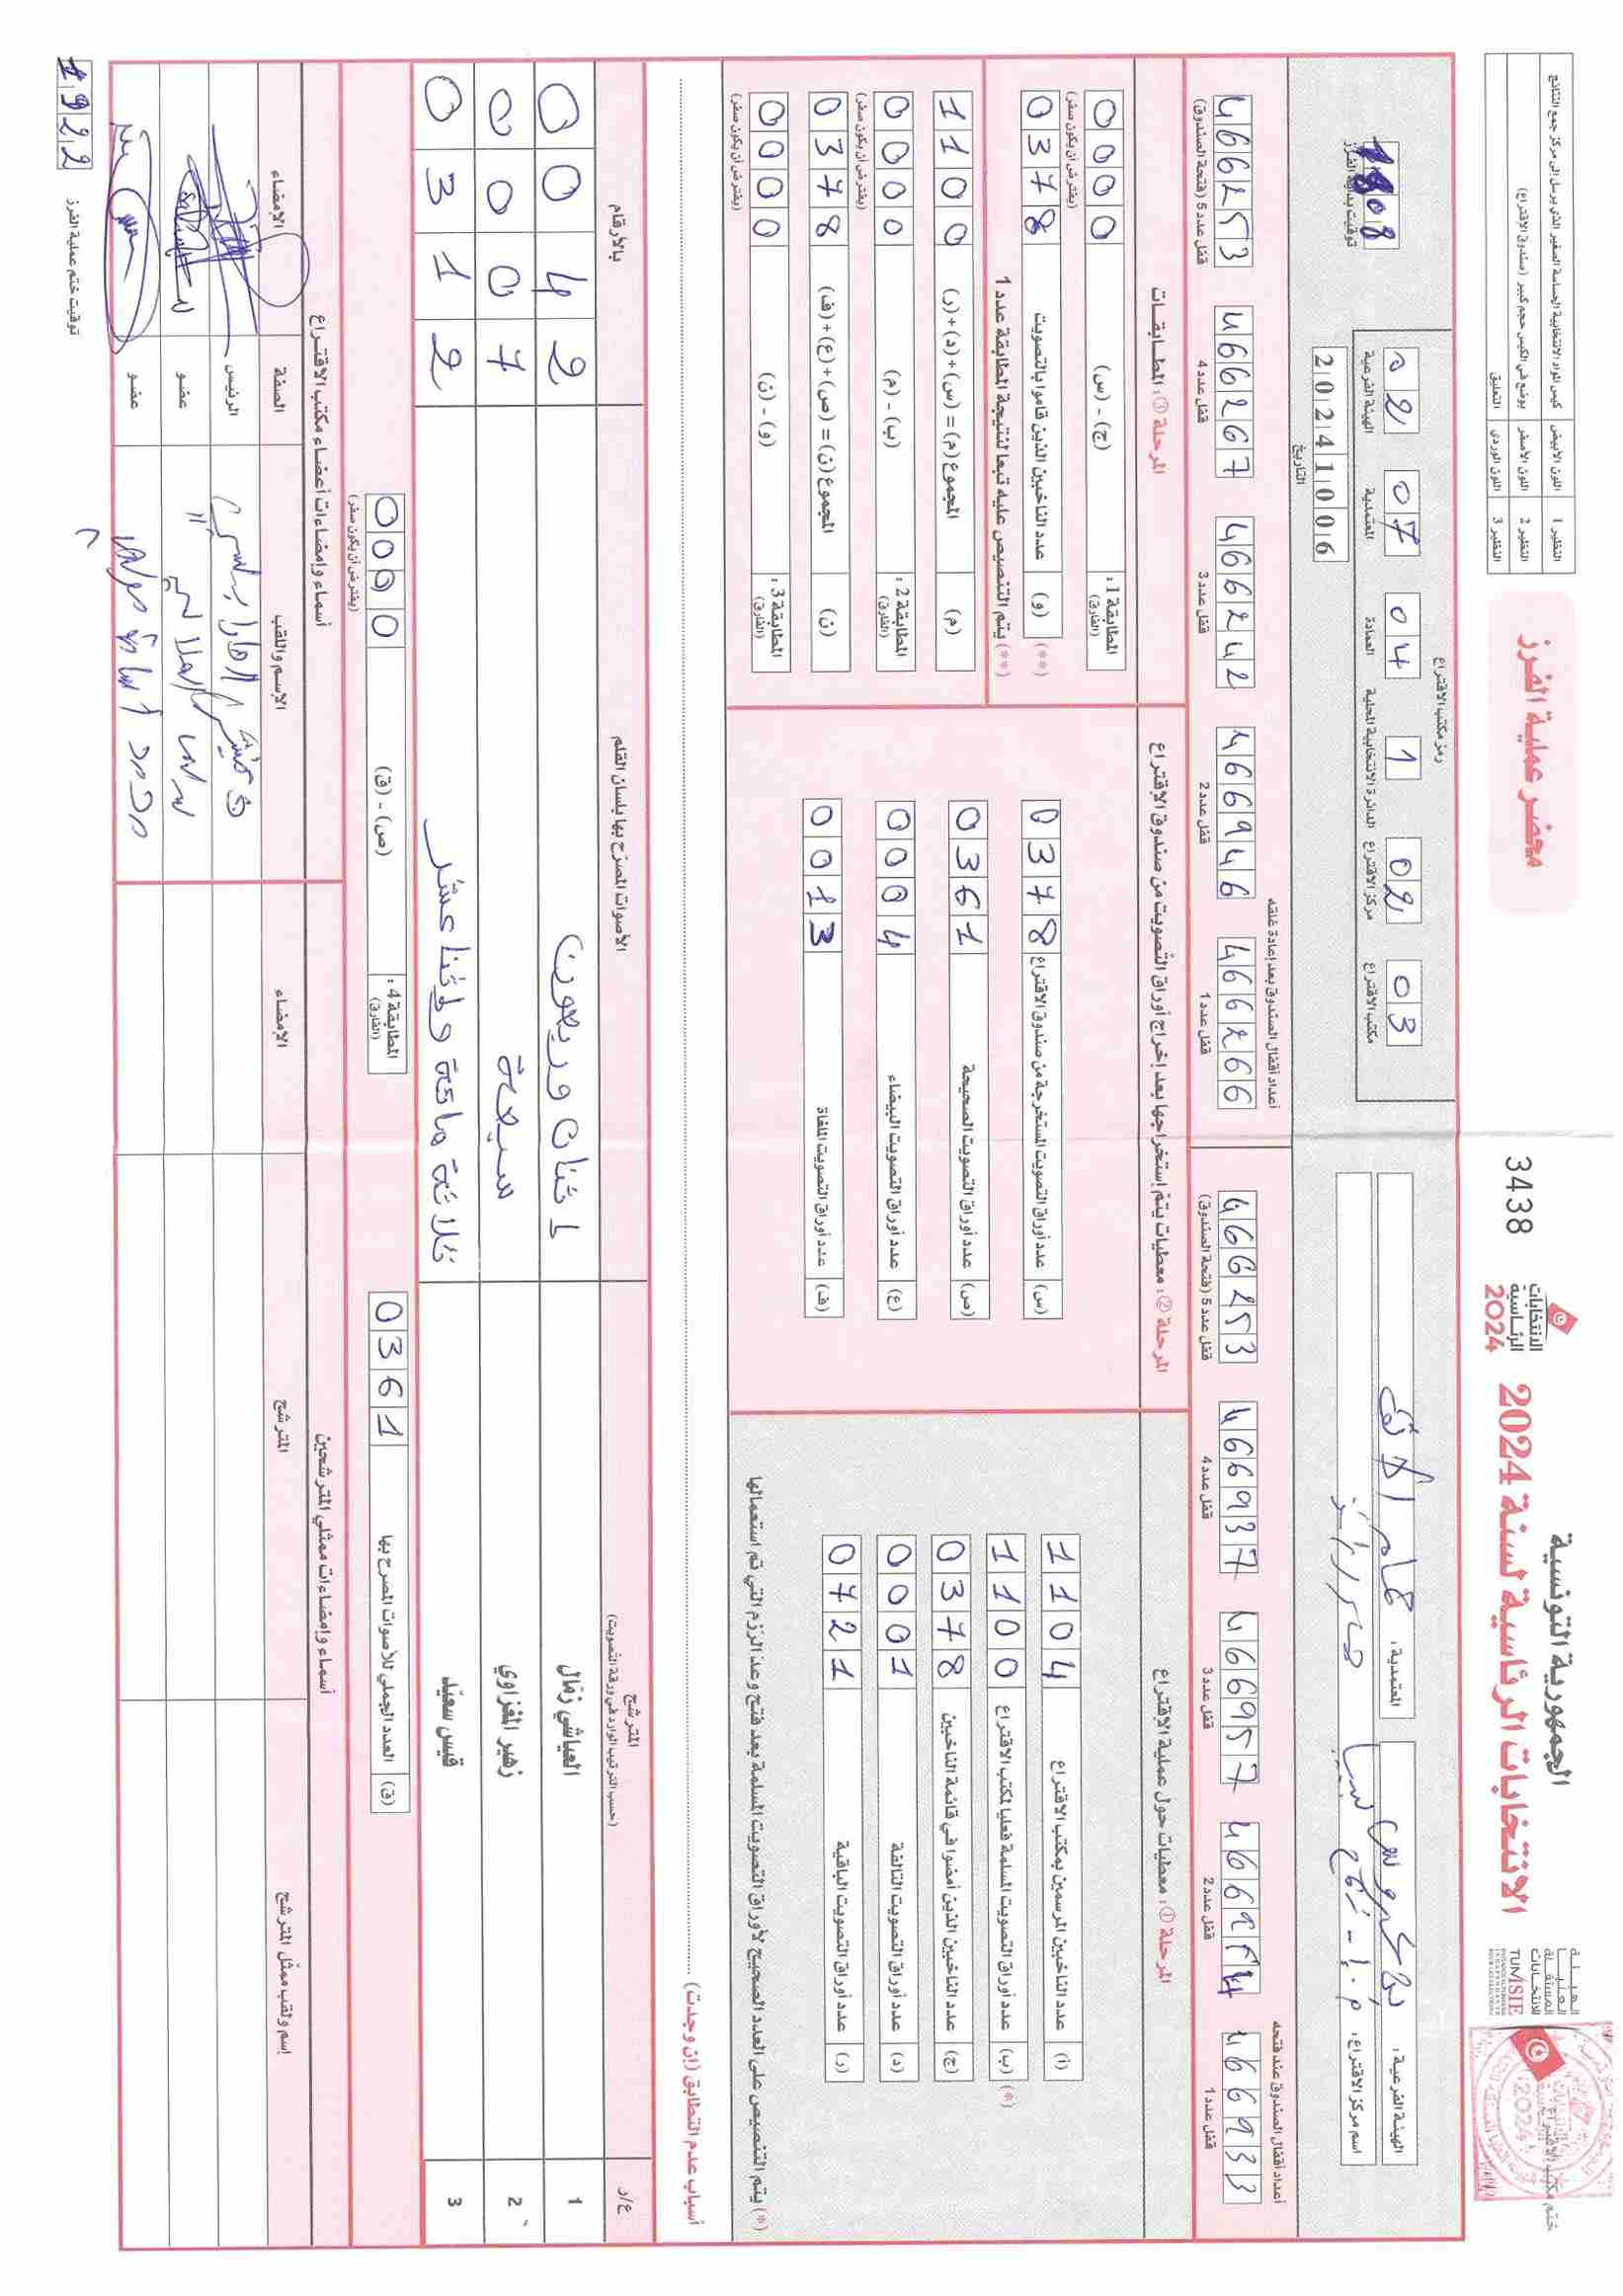 الجمهورية التونسية
الانتخابات الرئاسية لسنة 2024
الهيئة
العليا
المستقلة
للانتخابات
TUNISIE
ختم مكتب الاقتراع
الانتخابات
الرئاسية
2024
3438
محضر عملية الفرز
النظير 1 اللون الأبيض كيس المواد الانتخابية الحساسة الصغير الذي يرسل إلى مركز جمع النتائج
النظير 2 اللون الأصفر يوضع في الكيس حجم كبير (صندوق الاقتراع)
النظير 3 اللون الوردي التعليق
الهيئة الفرعية:
المعتمدية:
اسم مركز الاقتراع:
رمز مكتب الاقتراع
02 07 04 1 02 03
الهيئة الفرعية المعتمدية العمادة الدائرة الانتخابية المحلية مركز الاقتراع مكتب الاقتراع
20241006
التاريخ
توقيت بداية الفرز
أعداد أقفال الصندوق عند فتحه
4666253
قفل عدد 1 قفل عدد 2 قفل عدد 3 قفل عدد 4 قفل عدد 5 (فتحة الصندوق)
4669937 4669957
أعداد أقفال الصندوق بعد إعادة غلقه
4666266 4666242 4666267 4666253
قفل عدد 1 قفل عدد 2 قفل عدد 3 قفل عدد 4 قفل عدد 5 (فتحة الصندوق)
المرحلة ①: معطيات حول عملية الإقتراع
(أ) عدد الناخبين المرسمين بمكتب الاقتراع 1104
(ب) عدد أوراق التصويت المسلمة فعليا لمكتب الاقتراع 1100 (*)
(ج) عدد الناخبين الذين أمضوا في قائمة الناخبين 0378
(د) عدد أوراق التصويت التالفة 0001
(ر) عدد أوراق التصويت الباقية 0721
(*) يتم التنصيص على العدد الصحيح لأوراق التصويت المسلمة بعد فتح وعد الرزم التي تم استعمالها
المرحلة ②: معطيات يتم إستخراجها بعد إخراج أوراق التصويت من صندوق الإقتراع
(س) عدد أوراق التصويت المستخرجة من صندوق الاقتراع 0378
(ص) عدد أوراق التصويت الصحيحة 0361
(ع) عدد أوراق التصويت البيضاء 0004
(ف) عدد أوراق التصويت الملغاة 0013
المرحلة ③: المطابقات
المطابقة 1: (الفارق) (ج) - (س) 0000
(يفترض أن يكون صفر)
(**) (و) عدد الناخبين الذين قاموا بالتصويت 0378
(**) يتم التنصيص عليه تبعا لنتيجة المطابقة عدد 1
(م) المجموع (م) = (س) + (د) + (ر) 1100
المطابقة 2: (الفارق) (ب) - (م) 0000
(يفترض أن يكون صفر)
(ن) المجموع (ن) = (ص) + (ع) + (ف) 0378
المطابقة 3: (الفارق) (و) - (ن) 0000
(يفترض أن يكون صفر)
أسباب عدم التطابق (إن وجدت)
ع/د المترشح (حسب الترتيب الوارد في ورقة التصويت) الأصوات المصرّح بها بلسان القلم بالأرقام
1 العياشي زمّال اثنان وربعون 0042
2 زهير المغزاوي سبعة 0007
3 قيس سعيّد ثلاثة مائة وإثنا عشر 0312
(ق) العدد الجملي للأصوات المصرح بها 0361
المطابقة 4: (الفارق) (ص) - (ق) 0000
(يفترض أن يكون صفر)
أسماء وإمضاءات ممثلي المترشحين
إسم ولقب ممثل المترشح المترشح الإمضاء
أسماء وإمضاءات أعضاء مكتب الاقتراع
الإسم واللقب الصفة الإمضاء
الرئيس
عضو
عضو
1922
توقيت ختم عملية الفرز